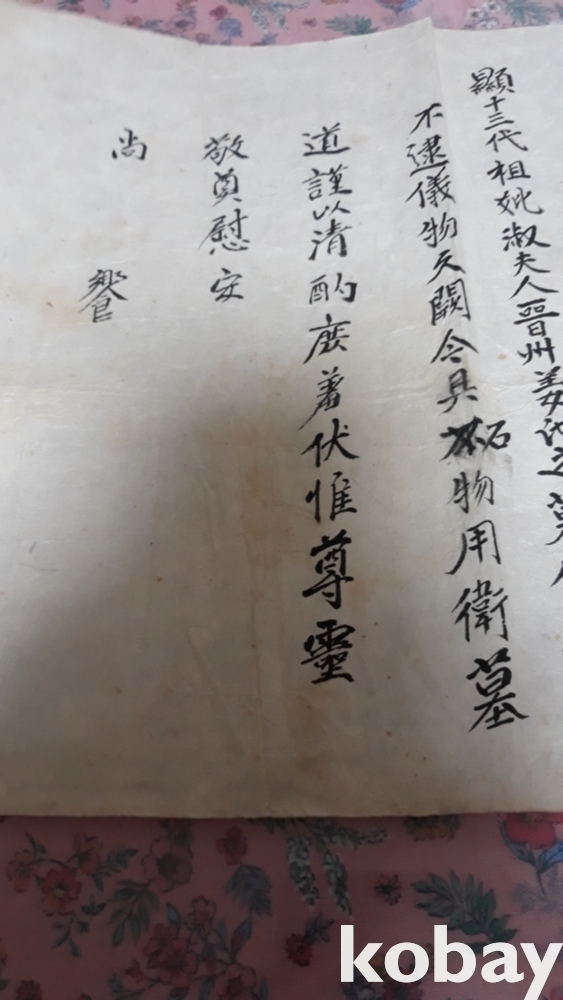 顯十三代祖妣淑夫人晉州姜氏之墓
不逮儀物久闕今具石物用衛墓
道謹以清酌庶羞伏惟尊靈
敬奠慰安
尚
饗
kobay